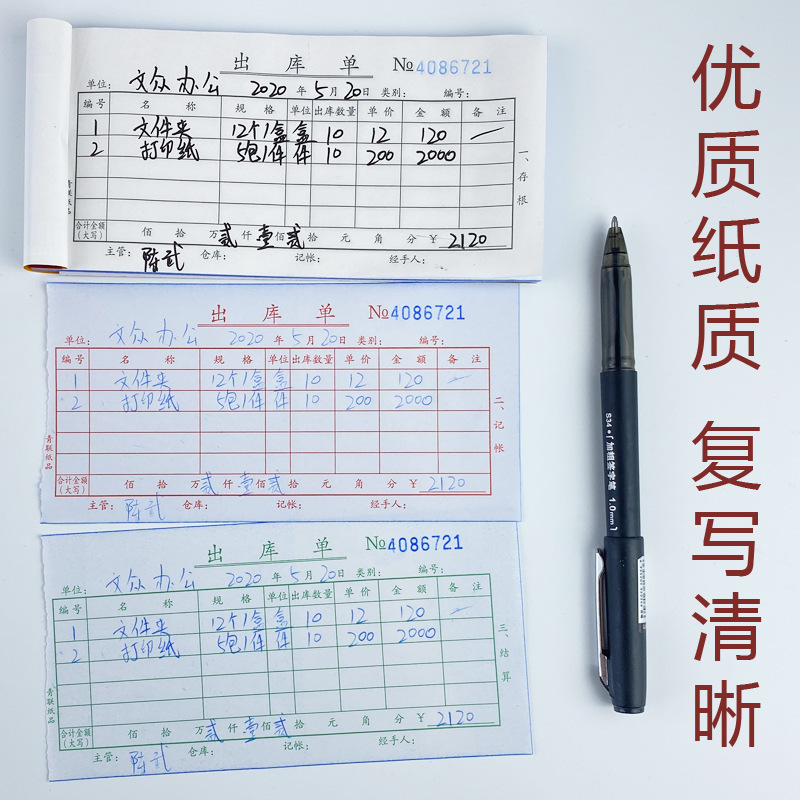 出 库 单 №4086721
单位: 文众办公 2020 年 5 月 20 日 类别: 编号:
编号 名 称 规 格 单位 出库数量 单 价 金 额 备 注
1 文件夹 12个1盒 盒 10 12 120 —
2 打印纸 5包1件 件 10 200 2000
一、存根
青联纸品
合计金额(大写) 佰 拾 万 贰 仟 壹 佰 贰 拾 元 角 分 ¥ 2120
主管: 陈武 仓库: 记帐: 经手人:
出 库 单 №4086721
单位: 文众办公 2020 年 5 月 20 日 类别: 编号:
编号 名 称 规 格 单位 出库数量 单 价 金 额 备 注
1 文件夹 12个1盒 盒 10 12 120 —
2 打印纸 5包1件 件 10 200 2000
二、记帐
青联纸品
合计金额(大写) 佰 拾 万 贰 仟 壹 佰 贰 拾 元 角 分 ¥ 2120
主管: 陈武 仓库: 记帐: 经手人:
出 库 单 №4086721
单位: 文众办公 2020 年 5 月 20 日 类别: 编号:
编号 名 称 规 格 单位 出库数量 单 价 金 额 备 注
1 文件夹 12个1盒 盒 10 12 120 —
2 打印纸 5包1件 件 10 200 2000
三、结算
青联纸品
合计金额(大写) 佰 拾 万 贰 仟 壹 佰 贰 拾 元 角 分 ¥ 2120
主管: 陈武 仓库: 记帐: 经手人:
S34 加粗签字笔 1.0mm
优质纸质 复写清晰